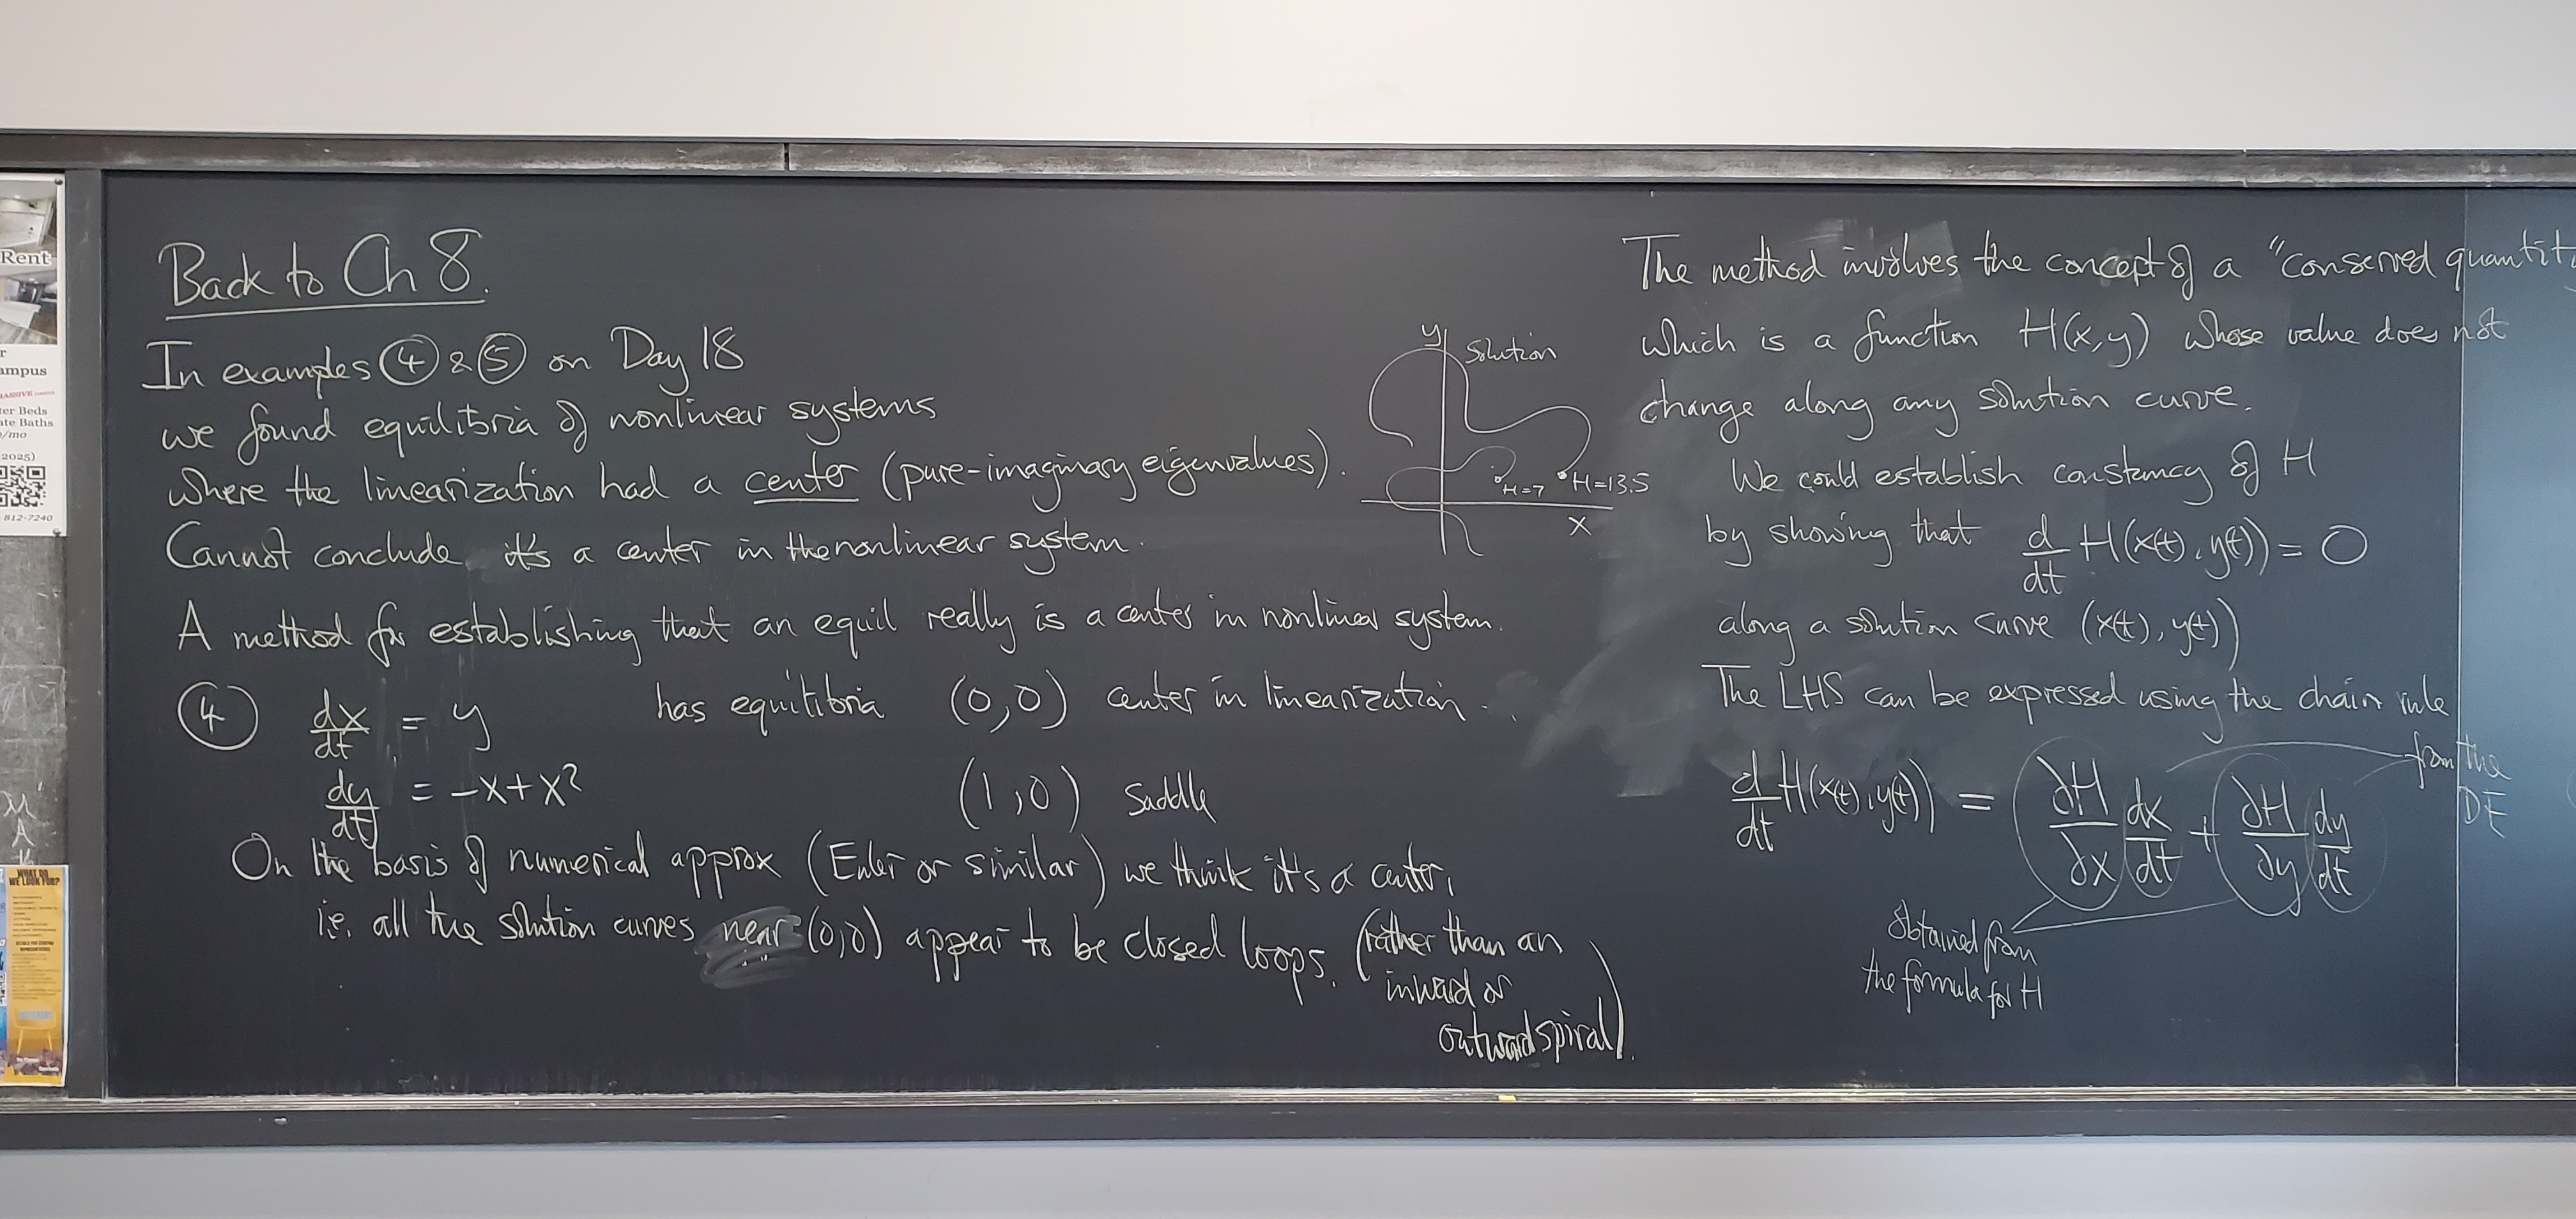 Back to Ch 8.
In examples ④ & ⑤ on Day 18
we found equilibria of nonlinear systems
where the linearization had a center (pure-imaginary eigenvalues).
Cannot conclude it's a center in the nonlinear system.
A method for establishing that an equil really is a center in nonlinear system.
④ dx/dt = y has equilibria (0,0) center in linearization.
dy/dt = -x+x² (1,0) saddle
On the basis of numerical approx (Euler or similar) we think it's a center,
i.e. all the solution curves near (0,0) appear to be closed loops. (rather than an
inward or
outward spiral).
y
Solution
H=7 H=13.5
x
The method involves the concept of a "conserved quantity
which is a function H(x,y) whose value does not
change along any solution curve.
We could establish constancy of H
by showing that d/dt H(x(t),y(t)) = 0
along a solution curve (x(t),y(t))
The LHS can be expressed using the chain rule
d/dt H(x(t),y(t)) = ∂H/∂x dx/dt + ∂H/∂y dy/dt
from the
DE
obtained from
the formula for H
Rent
ampus
MASSIVE
ter Beds
ate Baths
/mo
2025)
812-7240
WHAT DO
WE LOOK FOR?